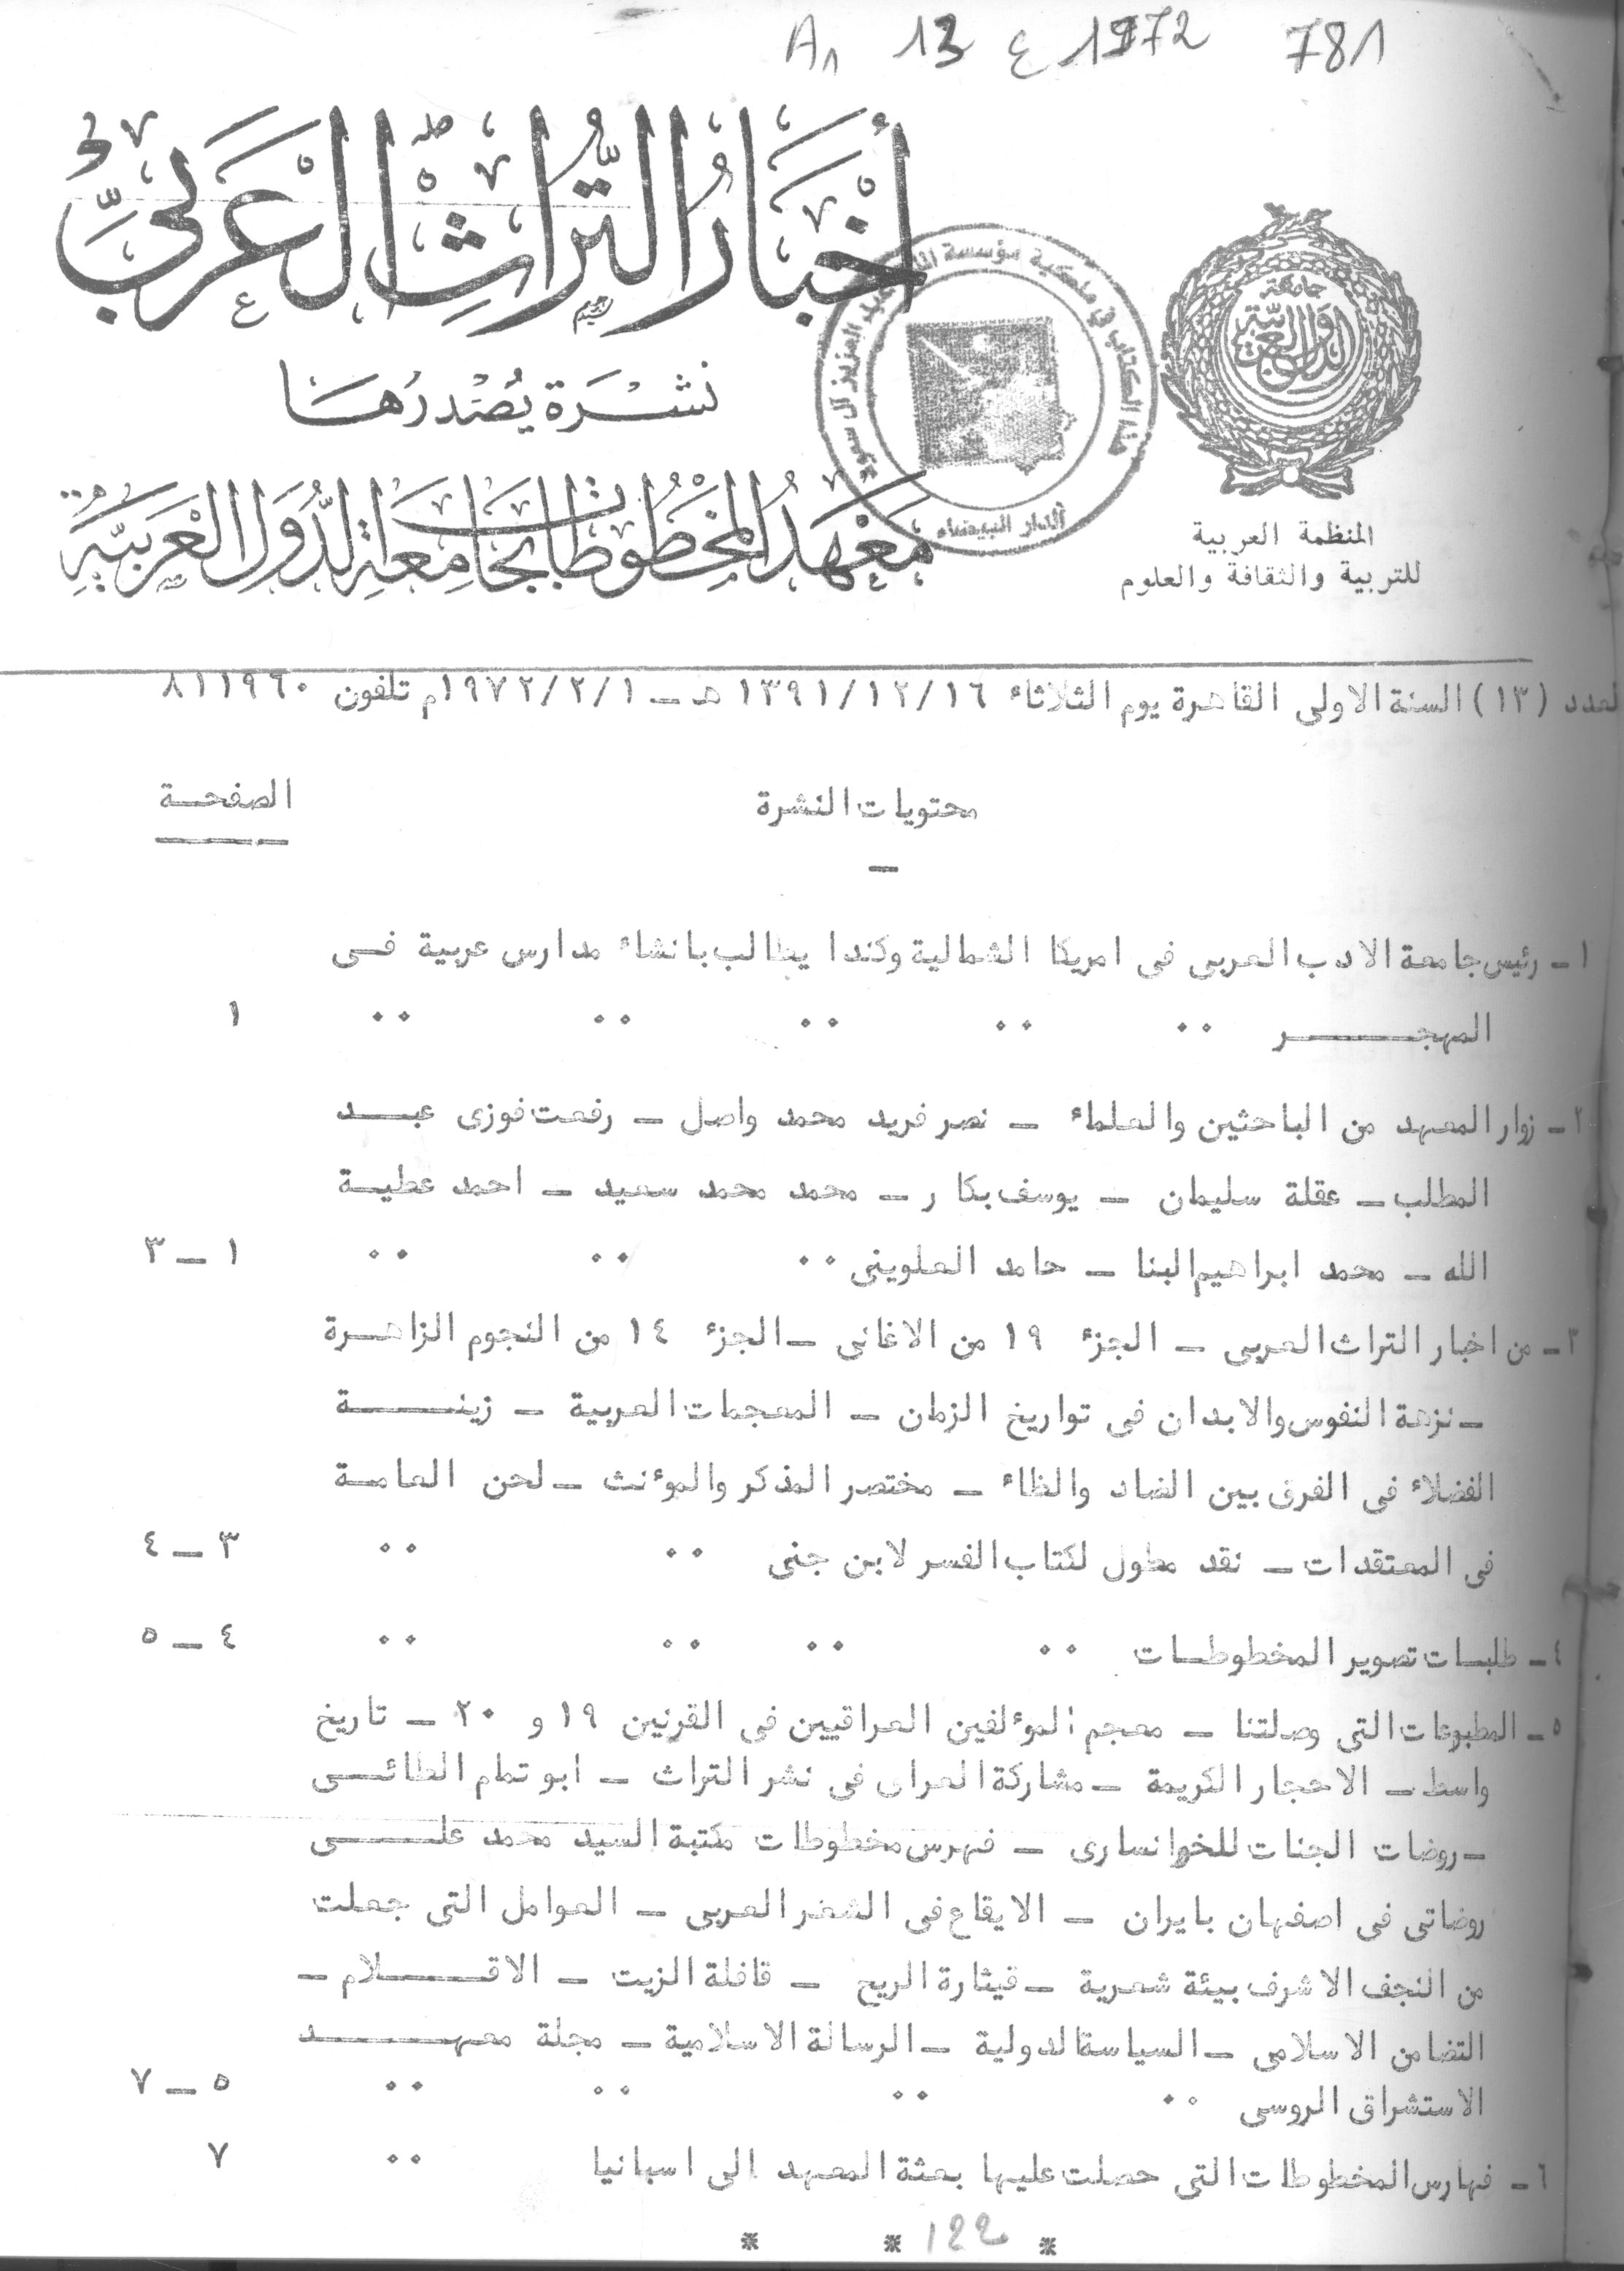 A1 13 ع 1972 781
أخبار التراث العربي
نشرة يصدرها
معهد المخطوطات بجامعة الدول العربية
جامعة
الدول العربية
المنظمة العربية
للتربية والثقافة والعلوم
هذا الكتاب في ملكية مؤسسة الملك عبد العزيز آل سعود
الدار البيضاء
العدد (١٣) السنة الاولى القاهرة يوم الثلاثاء ١٣٩١/١٢/١٦ هـ ـ ١٩٧٢/٢/١م تلفون ٨١١٩٦٠
محتويات النشرة الصفحـة
١ـ رئيس جامعة الادب العربى فى امريكا الشمالية وكندا يطالب بانشاء مدارس عربية فـى
المهجـــر ٠٠ ٠٠ ٠٠ ٠٠ ٠٠ ١
٢ـ زوار المعهد من الباحثين والعلماء ـ نصر فريد محمد واصل ـ رفعت فوزى عبـد
المطلب ـ عقلة سليمان ـ يوسف بكار ـ محمد محمد سعيد ـ احمد عطيـة
الله ـ محمد ابراهيم البنا ـ حامد العلوينى ٠٠ ٠٠ ٠٠ ١ ـ ٣
٣ـ من اخبار التراث العربى ـ الجزء ١٩ من الاغانى ـ الجزء ١٤ من النجوم الزاهـرة
ـ نزهة النفوس والابدان فى تواريخ الزمان ـ المعجمات العربية ـ زينــة
الفضلاء فى الفرق بين الضاد والظاء ـ مختصر المذكر والمؤنث ـ لحن العامـة
فى المعتقدات ـ نقد مطول لكتاب الفسر لابن جنى ٠٠ ٠٠ ٣ ـ ٤
٤ـ طلبـات تصوير المخطوطـات ٠٠ ٠٠ ٠٠ ٠٠ ٤ ـ ٥
٥ـ المطبوعات التى وصلتنا ـ معجم المؤلفين العراقيين فى القرنين ١٩ و ٢٠ ـ تاريخ
واسط ـ الاحجار الكريمة ـ مشاركة العراق فى نشر التراث ـ ابو تمام الطائـى
ـ روضات الجنات للخوانسارى ـ فهرس مخطوطات مكتبة السيد محمد علــى
روضاتى فى اصفهان بايران ـ الايقاع فى الشعر العربى ـ العوامل التى جعلت
من النجف الاشرف بيئة شعرية ـ قيثارة الريح ـ قافلة الزيت ـ الاقــلام ـ
التضامن الاسلامى ـ السياسة الدولية ـ الرسالة الاسلامية ـ مجلة معهــد
الاستشراق الروسى ٠٠ ٠٠ ٠٠ ٠٠ ٥ ـ ٧
٦ـ فهارس المخطوطات التى حصلت عليها بعثة المعهد الى اسبانيا ٠٠ ٧
* 122 * *